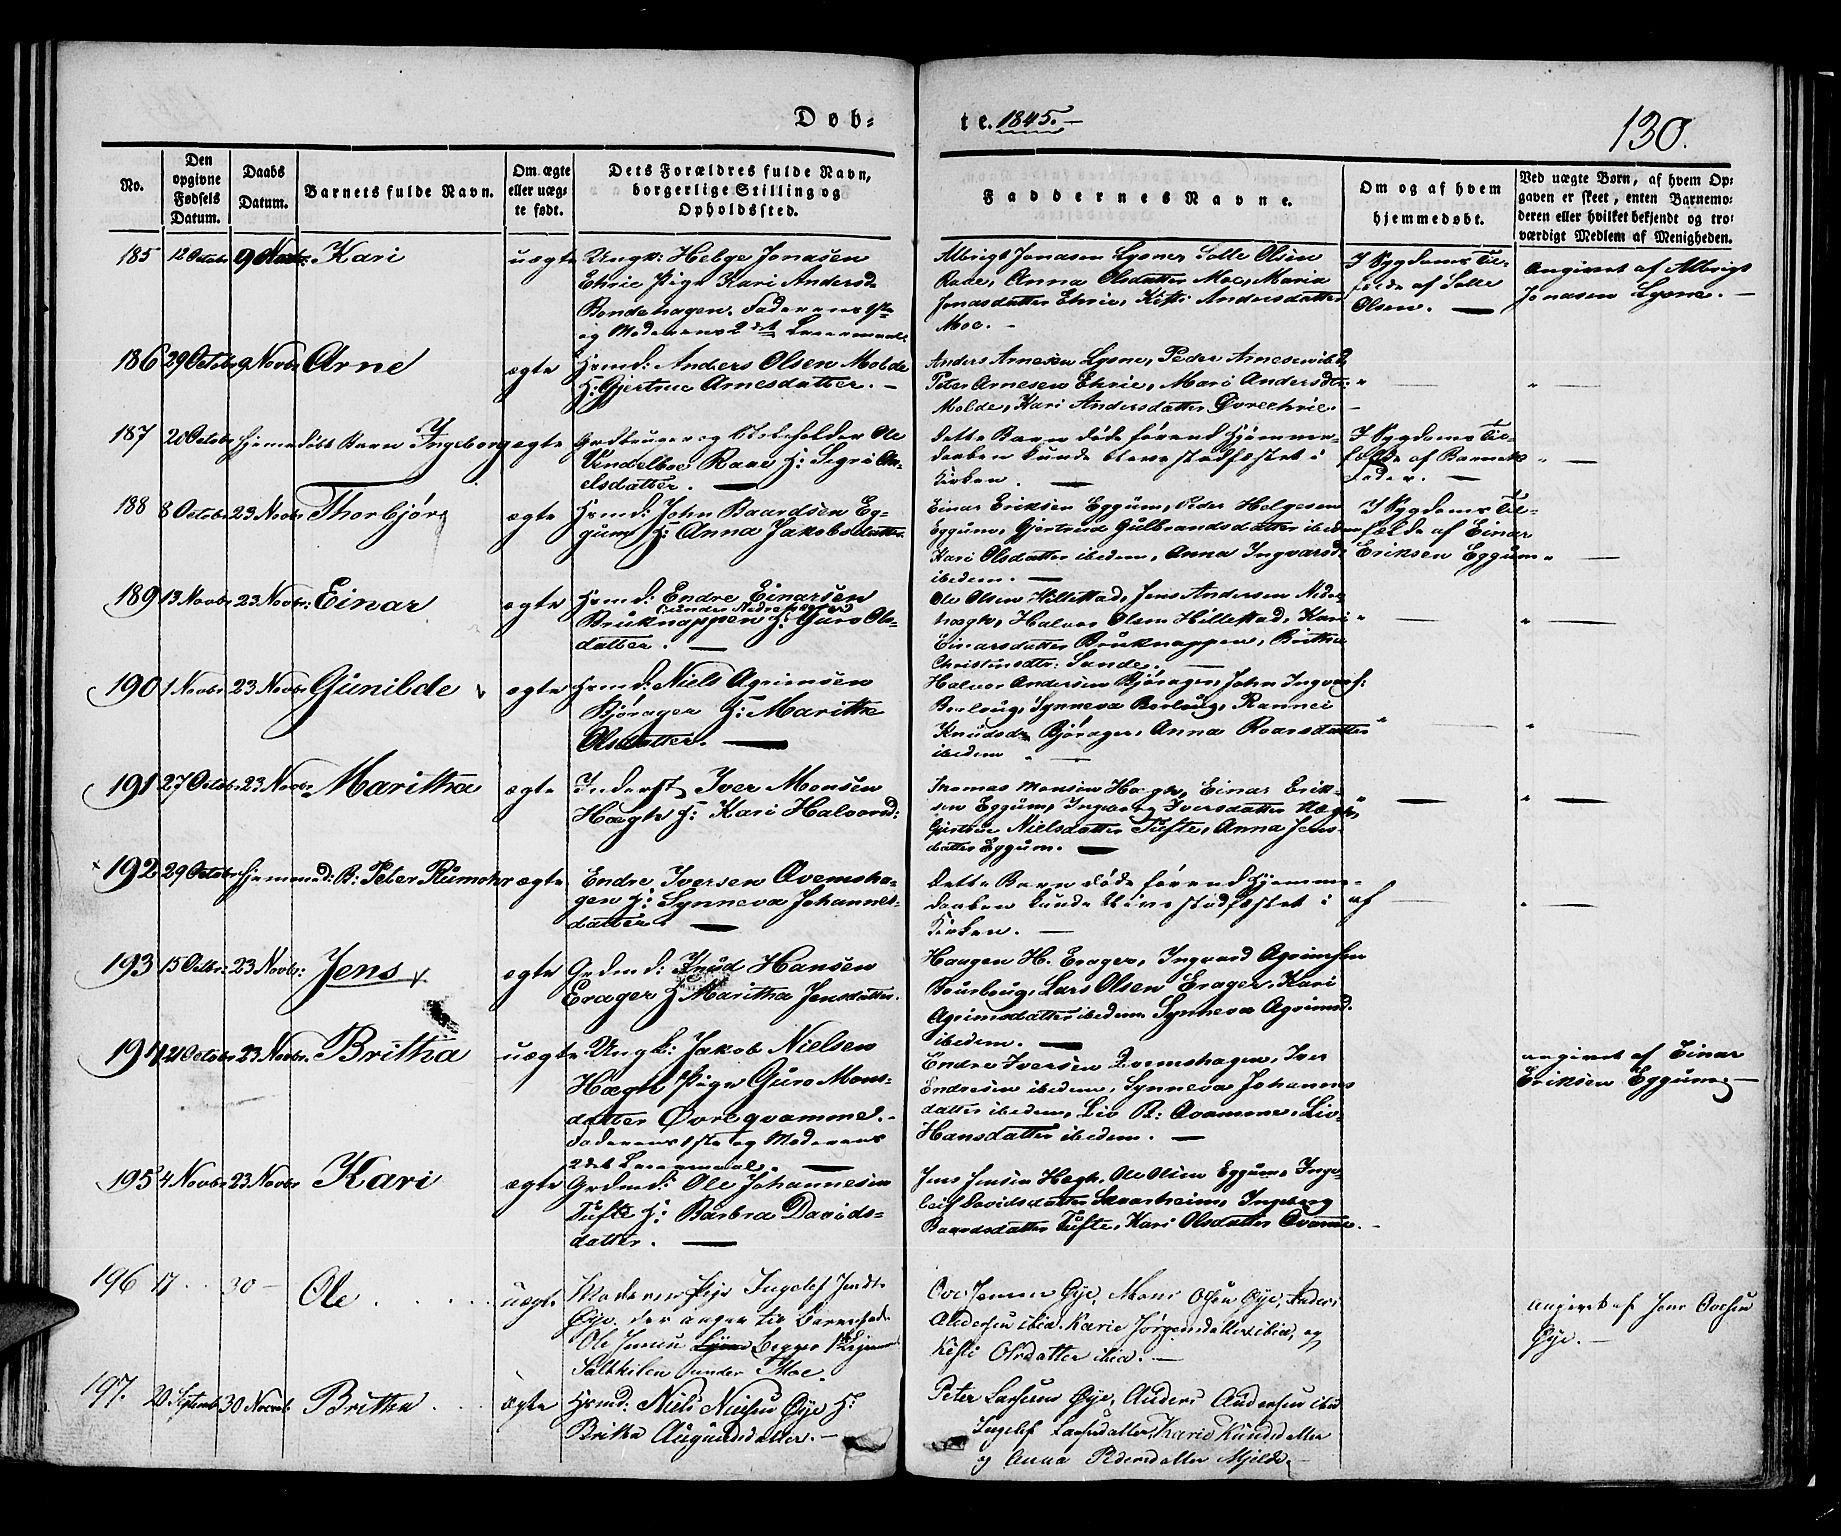 Døb-
te. 1845.-
130.
No.
Den opgivne Fødsels Datum.
Daabs Datum.
Barnets fulde Navn.
Om ægte eller uæg- te født.
Dets Forældres fulde Navn, borgerlige Stilling og Opholdssted.
Faddernes Navne.
Om og af hvem hjemmedøbt.
Ved uægte Børn, af hvem Op- gaven er skeet, enten Barnemo- deren eller hvilket bekjendt og tro- værdigt Medlem af Menigheden.
185 12 Octobr 9 Kari uægte Ungk: Helge Jonasen
Ehrie Pige Kari Andersd:
Bondehagen. Faderens 1ste
og Moderens 2det Leiermaal.
Albrigt Jonasen Lysne, Solle Olsen
Rae, Anna Olsdatter Moe, Maria
Jonasdatter Ehrie, Kisti Andersdatter
Moe. -
I Sygdoms Til-
fælde af Solle
Olsen. -
Angivet af Albrigt
Jonasen Lysne. -
186 29 Octobr 9 Novbr Arne ægte Hsmd: Anders Olsen Molde
H: Gjertrue Arnesdatter. -
Anders Arnesen Lysne, Peder Arnesen ibid,
Peter Arnesen Ehrie, Mari Andersdtr:
Molde, Kari Andersdatter Øvreehrie. -
187 20 Octobr hjemmedøbt Barn Ingeborg ægte Grdbruger og Ole
Vendelboe Raae H: Sigri
elsdatter. -
Dette Barn døde førend Hjemme-
daaben kunde blive stadfæstet i
Kirken. -
I Sygdoms Til-
fælde af Barnets
Fader. -
188 8 Octobr 23 Novbr Thorbjør ægte Hsmd: John Baardsen Eg-
gum H: Anna Jakobsdatter.
Einar Eriksen Eggum, Peder Helgesen
Eggum, Gjertrud Gulbrandsdatter ibidem,
Kari Olsdatter ibidem, Anna Ingvarsd:
ibidem. -
I Sygdoms Til-
fælde af Einar
Eriksen Eggum.
189 13 Novbr 23 Novbr: Einar ægte Hsmd: Endre Einarsen
Bruknappen H: Guro Ols-
datter. -
Ole Olsen Hillestad, Jens Andersen Nedre
hægh, Halvor Olsen Hillestad, Kari
Einarsdatter Bruknappen, Britha
Christensdtr: Sande. -
190 1 Novbr 23 Novbr Gunilde ægte Hsmd: Niels Agrimsen
Bjørager H: Maritha
Olsdatter. -
Halvor Andersen Bjørager, John Ingvars:
Borloug, Synneva Borloug, Rannei
Knudsd: Bjørager, Anna Roarsdatter
ibidem
191 27 Octobr 23 Novbr: Maritha ægte Inderst Iver Monsen
Hægh H: Kari Halvorsd:
Thomas Monsen Hægh, Einar Erik-
sen Eggum, Ingeborg Iversdatter Hægh,
Gjertrue Nielsdatter Tufte, Anna Jens-
datter Eggum. -
192 29 Octobr hjemmed: B: Peter Rumohr ægte Endre Iversen Qvemsha-
gen H: Synneva Johannes-
datter. -
Dette Barn døde førend Hjemme-
daaben kunde blive stadfæstet i
Kirken. -
af -
193 15 Octbr: 23 Novbr: Jens ægte Grdmd: Knud Hansen
Erager H: Maritha Jensdatter.
Haagen H. Erager, Ingvard Agrimsen
Lars Olsen Erager, Kari
Agrimsdatter ibidem, Synneva Agrimsd.
ibidem. -
194 21 Octobr 23 Novbr: Britha uægte Ungk: Jakob Nielsen
Hægh, Pige Guro Mons-
datter Øvreqvamme. -
Faderens 1ste og Moderens
2det Leiermaal. -
Endre Iversen Qvemshagen, Iver
Endresen ibidem, Synneva Johannes
datter ibidem, Liv R: Qvamme, Liv
Hansdatter ibidem. -
angivet af Einar
Eriksen Eggum. -
195 4 Novbr 23 Novbr Kari ægte Grdmd: Ole Johannesen
Tufte H: Barbra Davids-
datter. -
Jens Jensen Hægh, Ole Olsen Eggum, Inge-
leif Davidsdatter Skaarheim, Ingeborg
Baardsdatter Tufte, Kari Olsdatter Qvamme. -
196 17 .. 30 - Ole . . . uægte Moderen Pige Ingelef Jensdtr
Øye. der angav til Barnefader
Ole Jensen
Saltkilen under Moe.
Ove Jensen Øye, Mons Olsen Øye, Anders
Andersen ibid. Karie Jørgensdatter ibid, og
Kisti Olsdatter ibid. -
Angivet af Jens Ovesen
Øye. -
197. 20 Septemb 30 Novemb Britha . . ægte Hsmd: Niels Nielsen Øye H:
Britha Augundsdatter. -
Peter Larsen Øye, Anders Andersen ibid
Ingelef Larsdatter, Karie Knudsdatter
og Anna Pedersdatter Mjelde. -